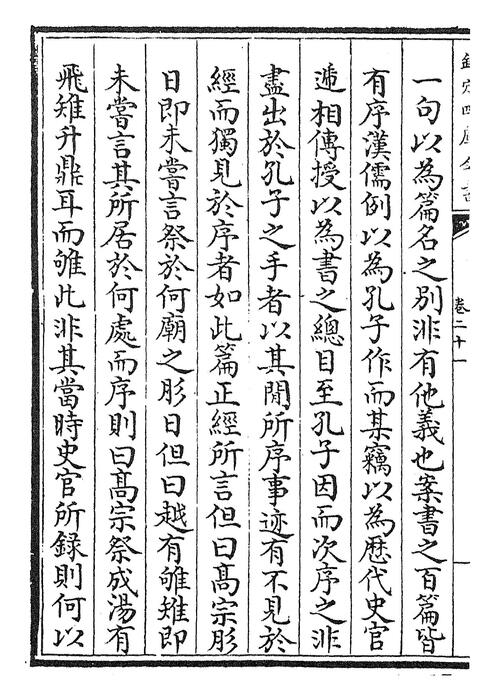 欽定四庫全書
卷二十一
一句以為篇名之別非有他義也案書之百篇皆
有序漢儒例以為孔子作而某竊以為歷代史官
遞相傳授以為書之總目至孔子因而次序之非
盡出於孔子之手者以其間所序事迹有不見於
經而獨見於序者如此篇正經所言但曰髙宗肜
日即未嘗言祭於何廟之肜日但曰越有雊雉即
未嘗言其所居於何處而序則曰髙宗祭成湯有
飛雉升鼎耳而雊此非其當時史官所録則何以